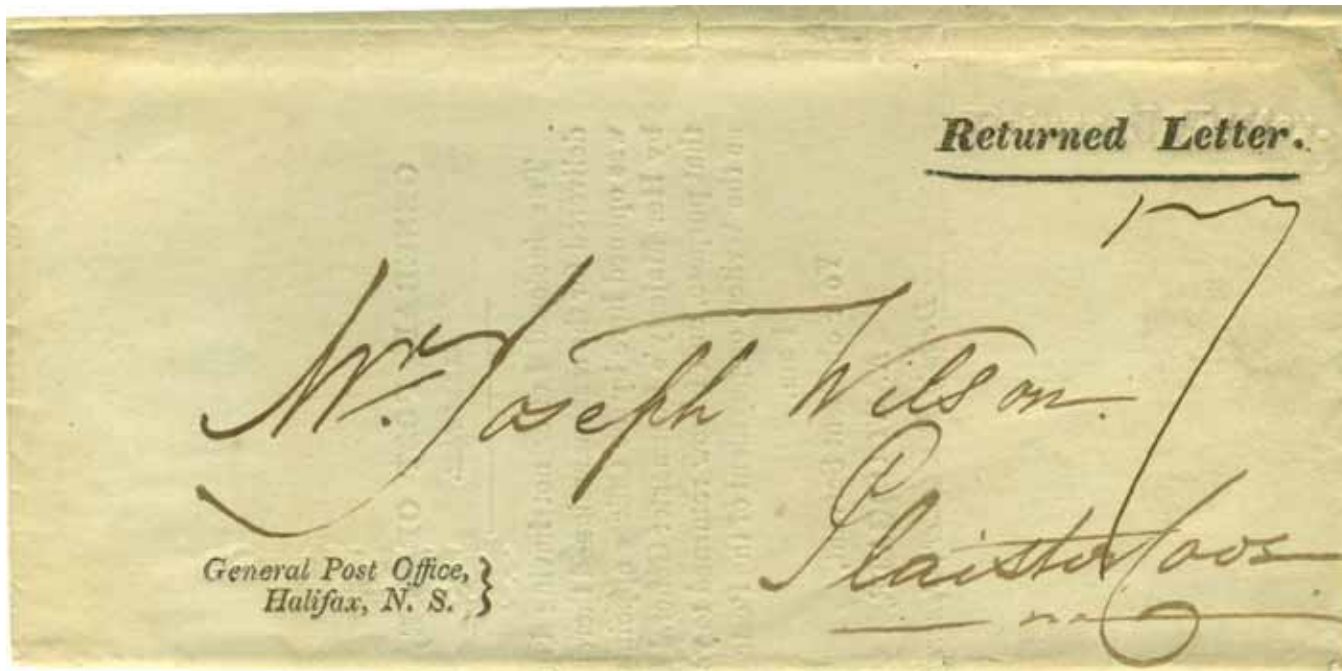 Returned Letter.
Mr. Joseph Wilson.
Plaister Cove
General Post Office,
Halifax, N. S.